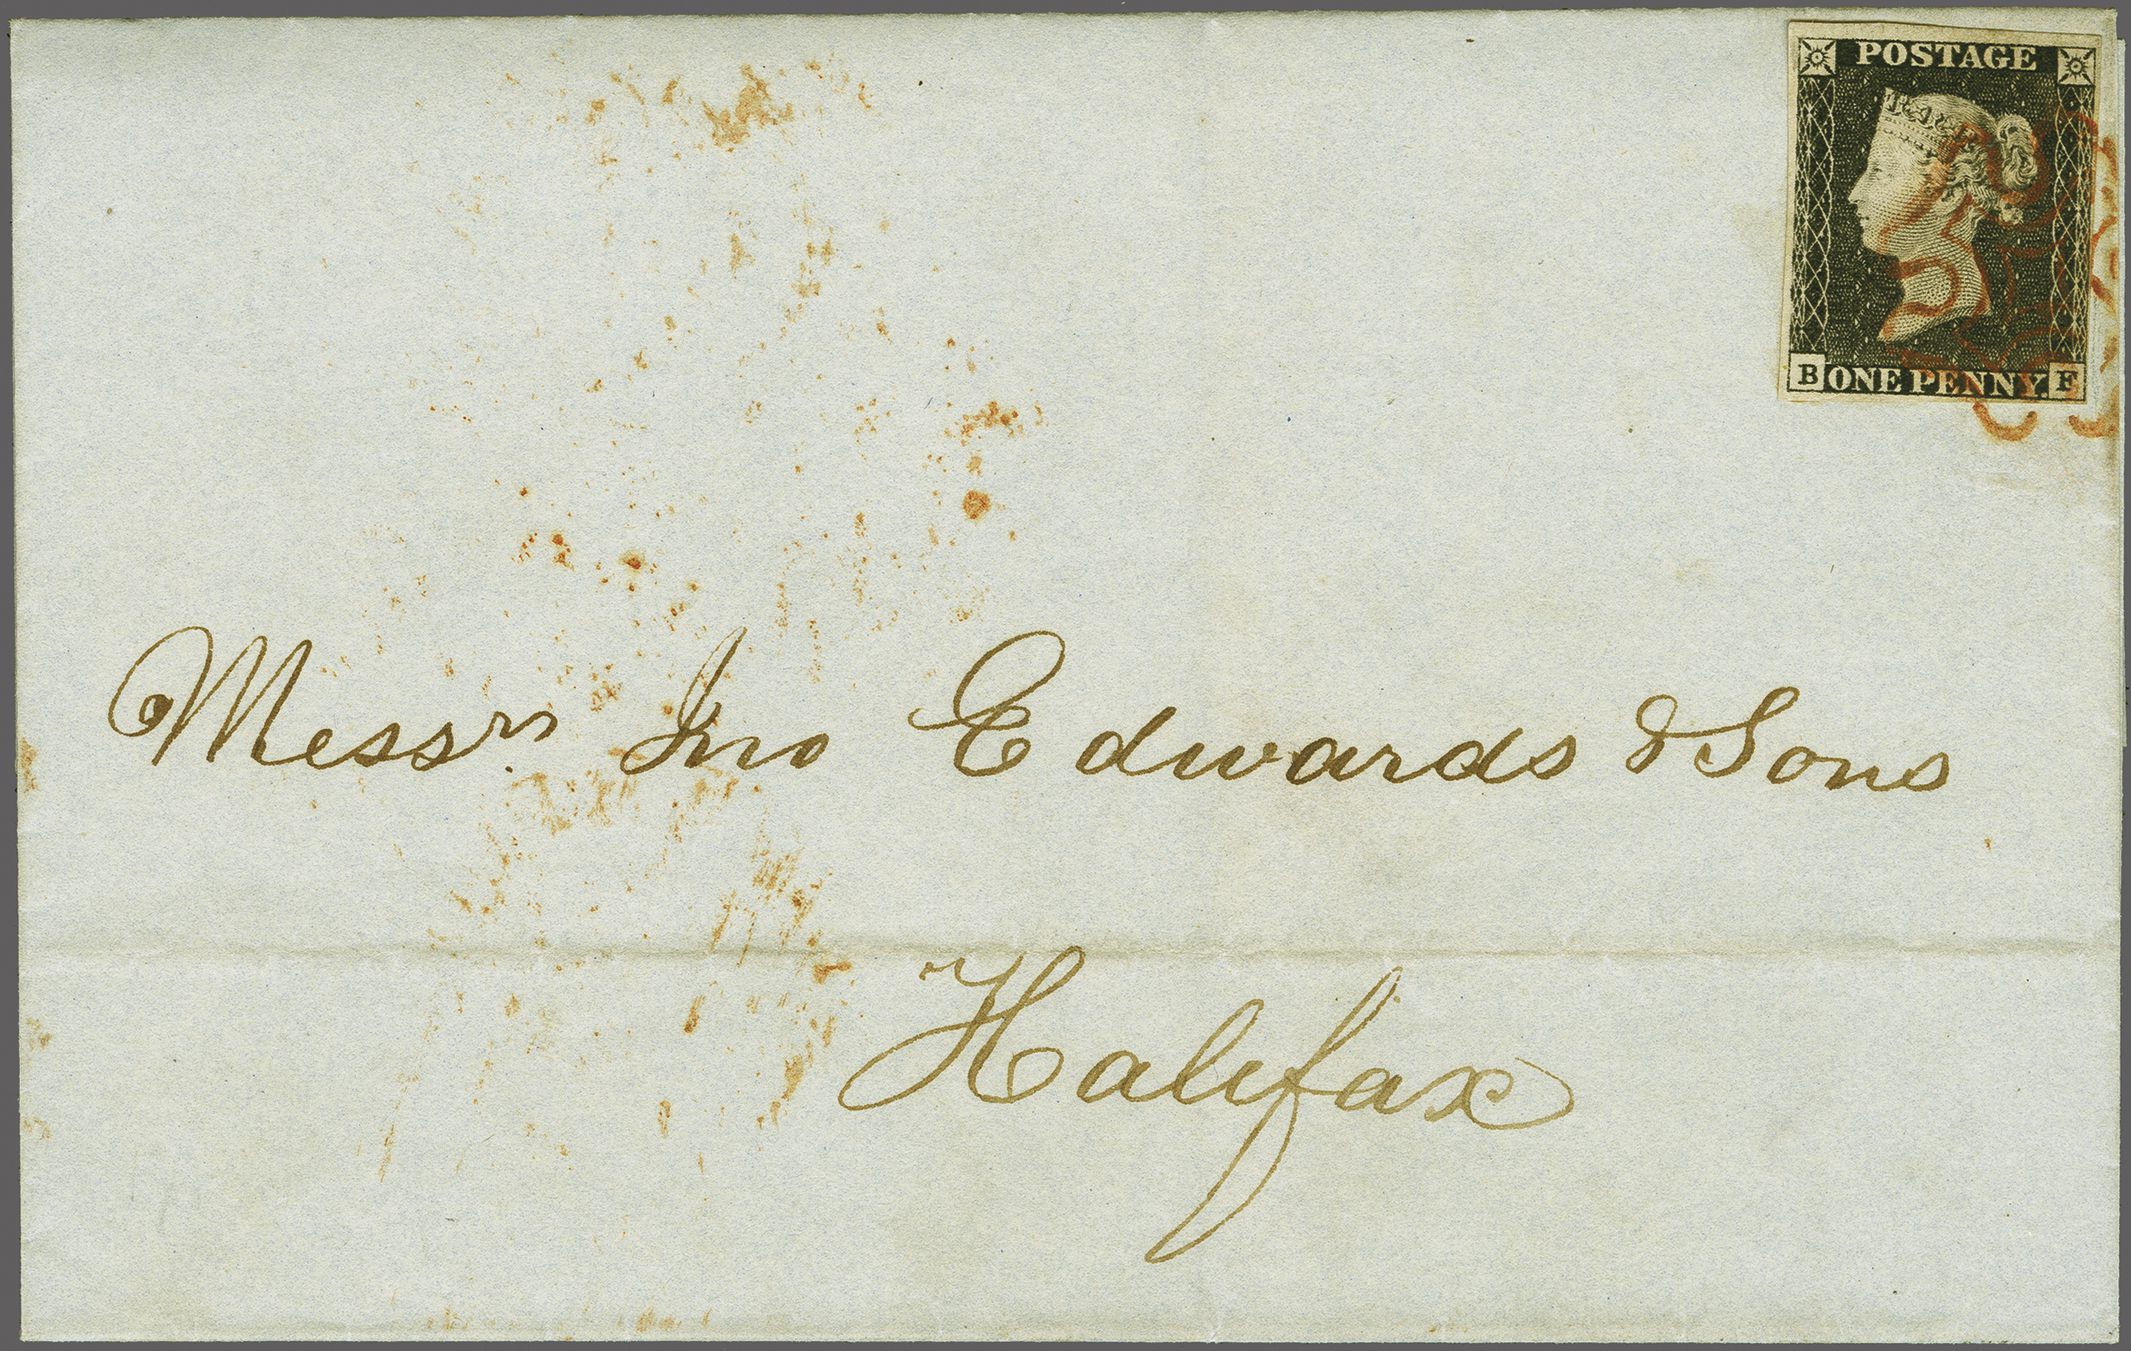 POSTAGE
B ONE PENNY. F
Messrs Jno Edwards & Sons
Halifax